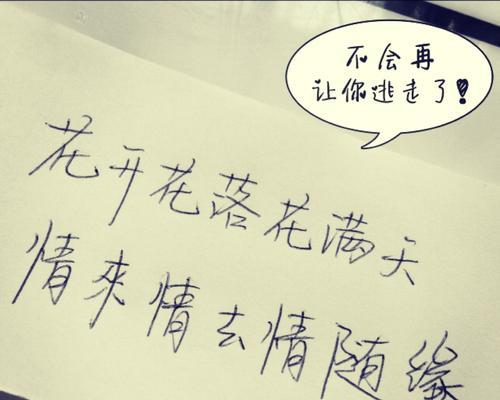 不会再
让你逃走了!
花开花落花满天
情來情去情随缘